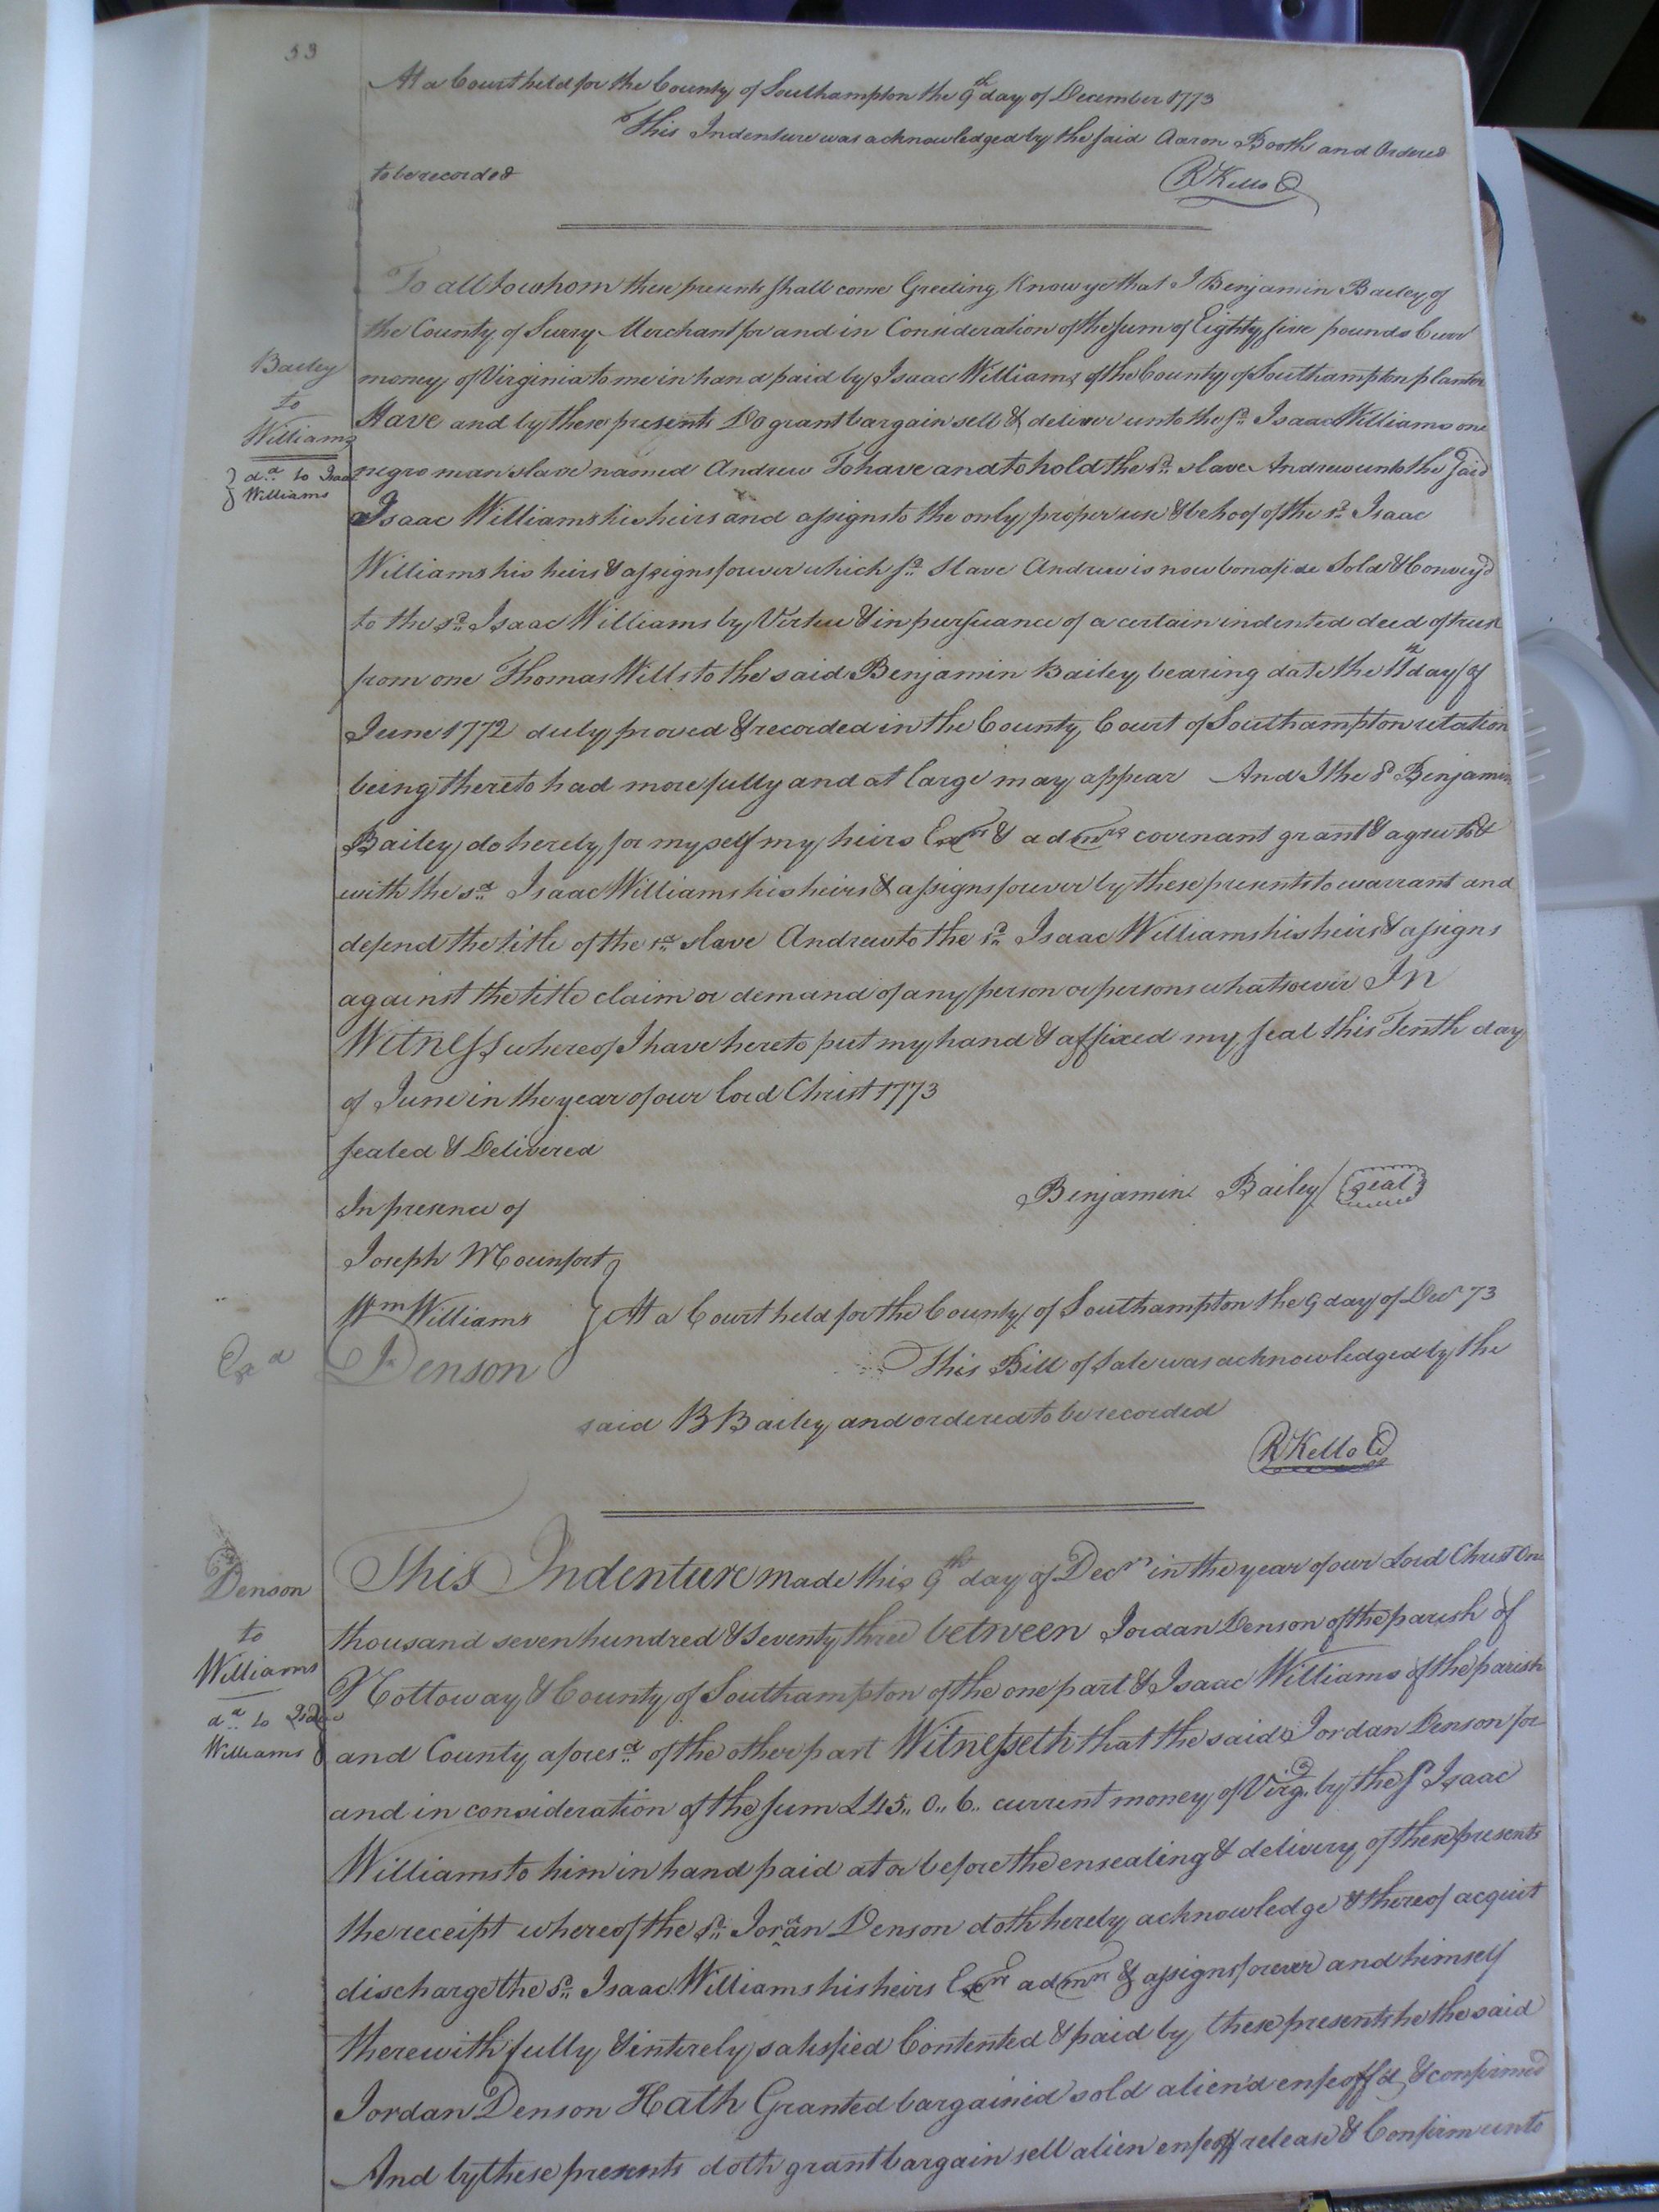 53
At a Court held for the County of Southampton the 9th day of December 1773
This Indenture was acknowledged by the said Aaron Booth and Ordered
to be recorded
R Kello C
To all to whom these presents shall come Greeting Know ye that I Benjamin Bailey of
the County of Surry Merchant for and in Consideration of the sum of Eighty five pounds Curr
Bailey
to
Williams
dd to Isaac
Williams
money of Virginia to me in hand paid by Isaac Williams of the County of Southampton planter
Have and by these presents Do grant bargain sell & deliver unto the sd Isaac Williams one
negro man slave named Andrew To have and to hold the sd slave Andrew unto the said
Isaac Williams his heirs and assigns to the only proper use & behoof of the sd Isaac
Williams his heirs & assigns forever which sd Slave Andrew is now bonafide Sold & Convey'd
to the sd Isaac Williams by Virtue & in pursuance of a certain indented deed of trust
from one Thomas Wills to the said Benjamin Bailey bearing date the 11th day of
June 1772 duly proved & recorded in the County Court of Southampton relation
being thereto had more fully and at large may appear And I the sd Benjamin
Bailey do hereby for myself my heirs Exrs & admrs covenant grant & agree to &
with the sd Isaac Williams his heirs & assigns forever by these presents to warrant and
defend the title of the sd slave Andrew to the sd Isaac Williams his heirs & assigns
against the title claim or demand of any person or persons whatsoever In
Witness whereof I have hereto put my hand & affixed my seal this Tenth day
of June in the year of our Lord Christ 1773
sealed & Delivered
In presence of
Benjamin Bailey seal
Joseph Mounfort
Wm Williams
At a Court held for the County of Southampton the 9 day of Decr 73
Exd
Denson
This Bill of Sale was acknowledged by the
said B Bailey and ordered to be recorded
R Kello C
Denson
to
Williams
dd to
Williams
This Indenture made this 9th day of Decr in the year of our Lord Christ One
thousand seven hundred & Seventy three between Jordan Denson of the parish of
Nottoway & County of Southampton of the one part & Isaac Williams of the parish
and County aforesd of the other part Witnesseth that the said Jordan Denson for
and in consideration of the sum £45,, 0,, 6,, current money of Virga by the sd Isaac
Williams to him in hand paid at or before the ensealing & delivery of these presents
the receipt whereof the sd Jordan Denson doth hereby acknowledge & thereof acquit
discharge the sd Isaac Williams his heirs Exrs admrs & assigns forever and himself
therewith fully & intirely satisfied Contented & paid by these presents he the said
Jordan Denson Hath Granted bargained sold alien'd enfeoff'd & confirmed
And by these presents doth grant bargain sell alien enfeoff release & Confirm unto